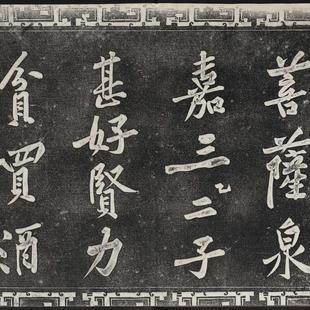 菩薩泉
嘉三二子
甚好賢力
貧買酒